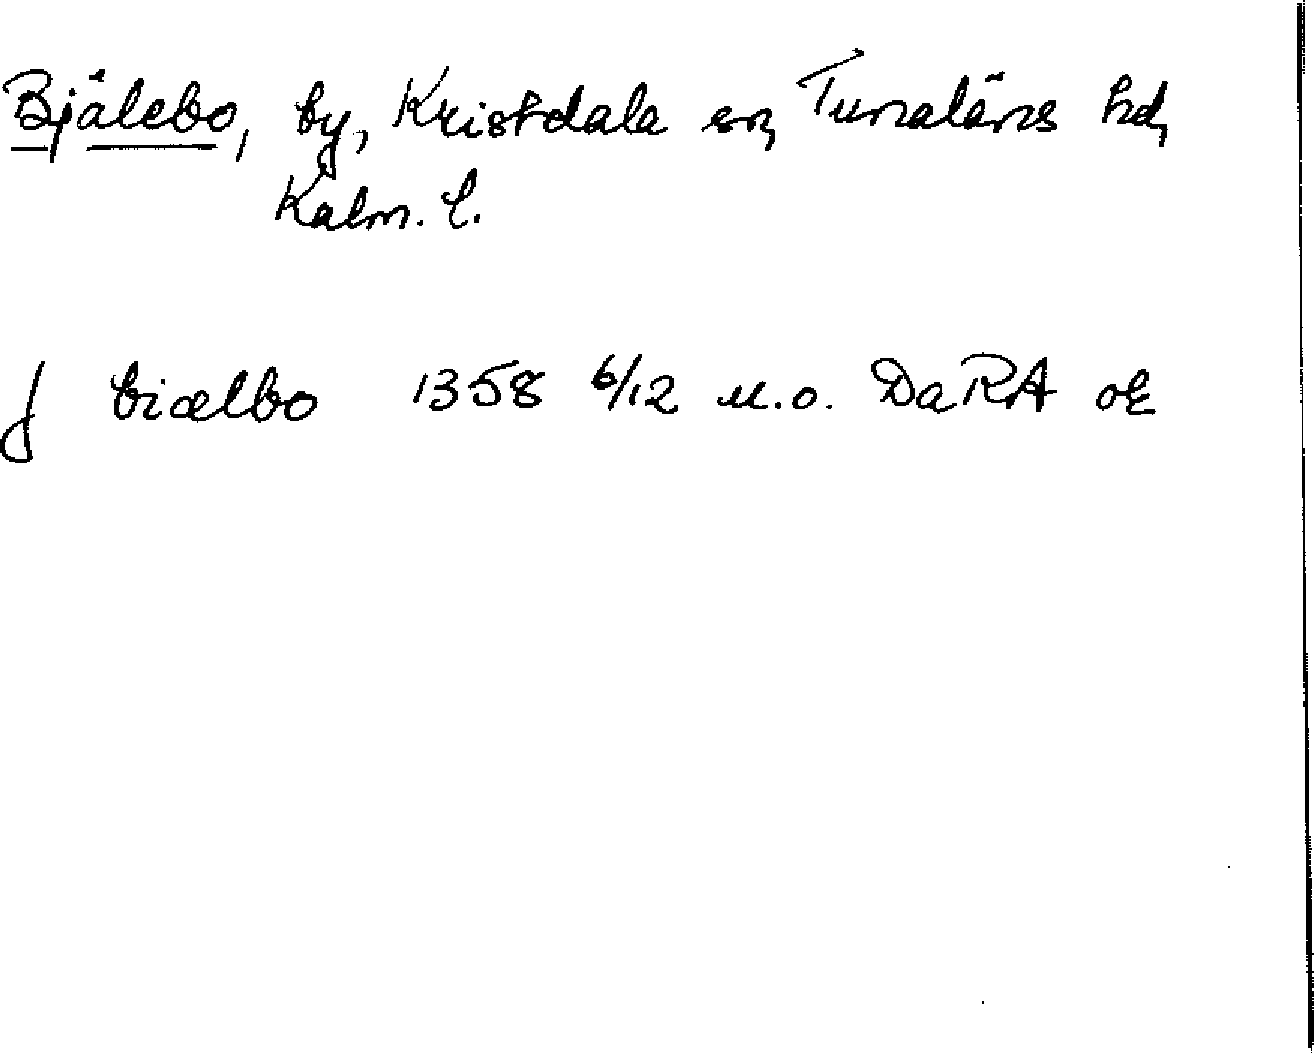 Bjälebo, by, Kristdala sn, Tunaläns hd,
Kalm. l.
J biælbo 1358 6/12 u.o. DaRA ok